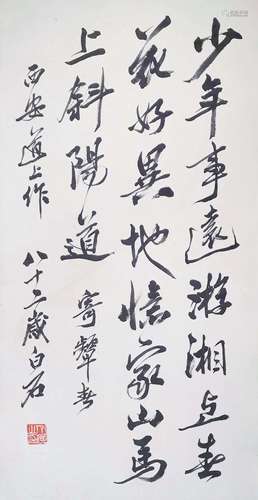 少年事遠游湘上春
花好異地憶家山馬
上斜陽道 寄颦春
西安道上作
八十二歲白石